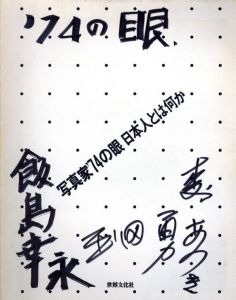 '74の眼
写真家'74の眼 日本人とは何か
飯島幸永
勇
あつき
世界文化社